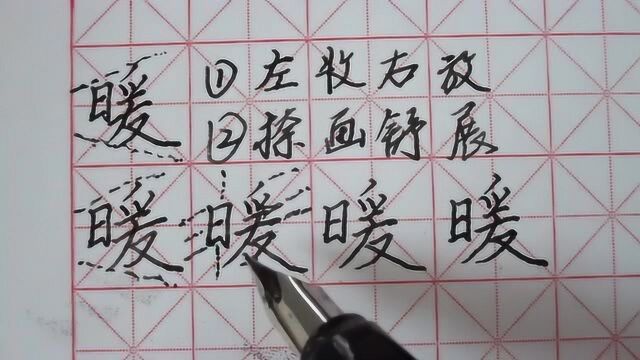 暖 ①左收右放
②捺画舒展
暖 暖 暖 暖